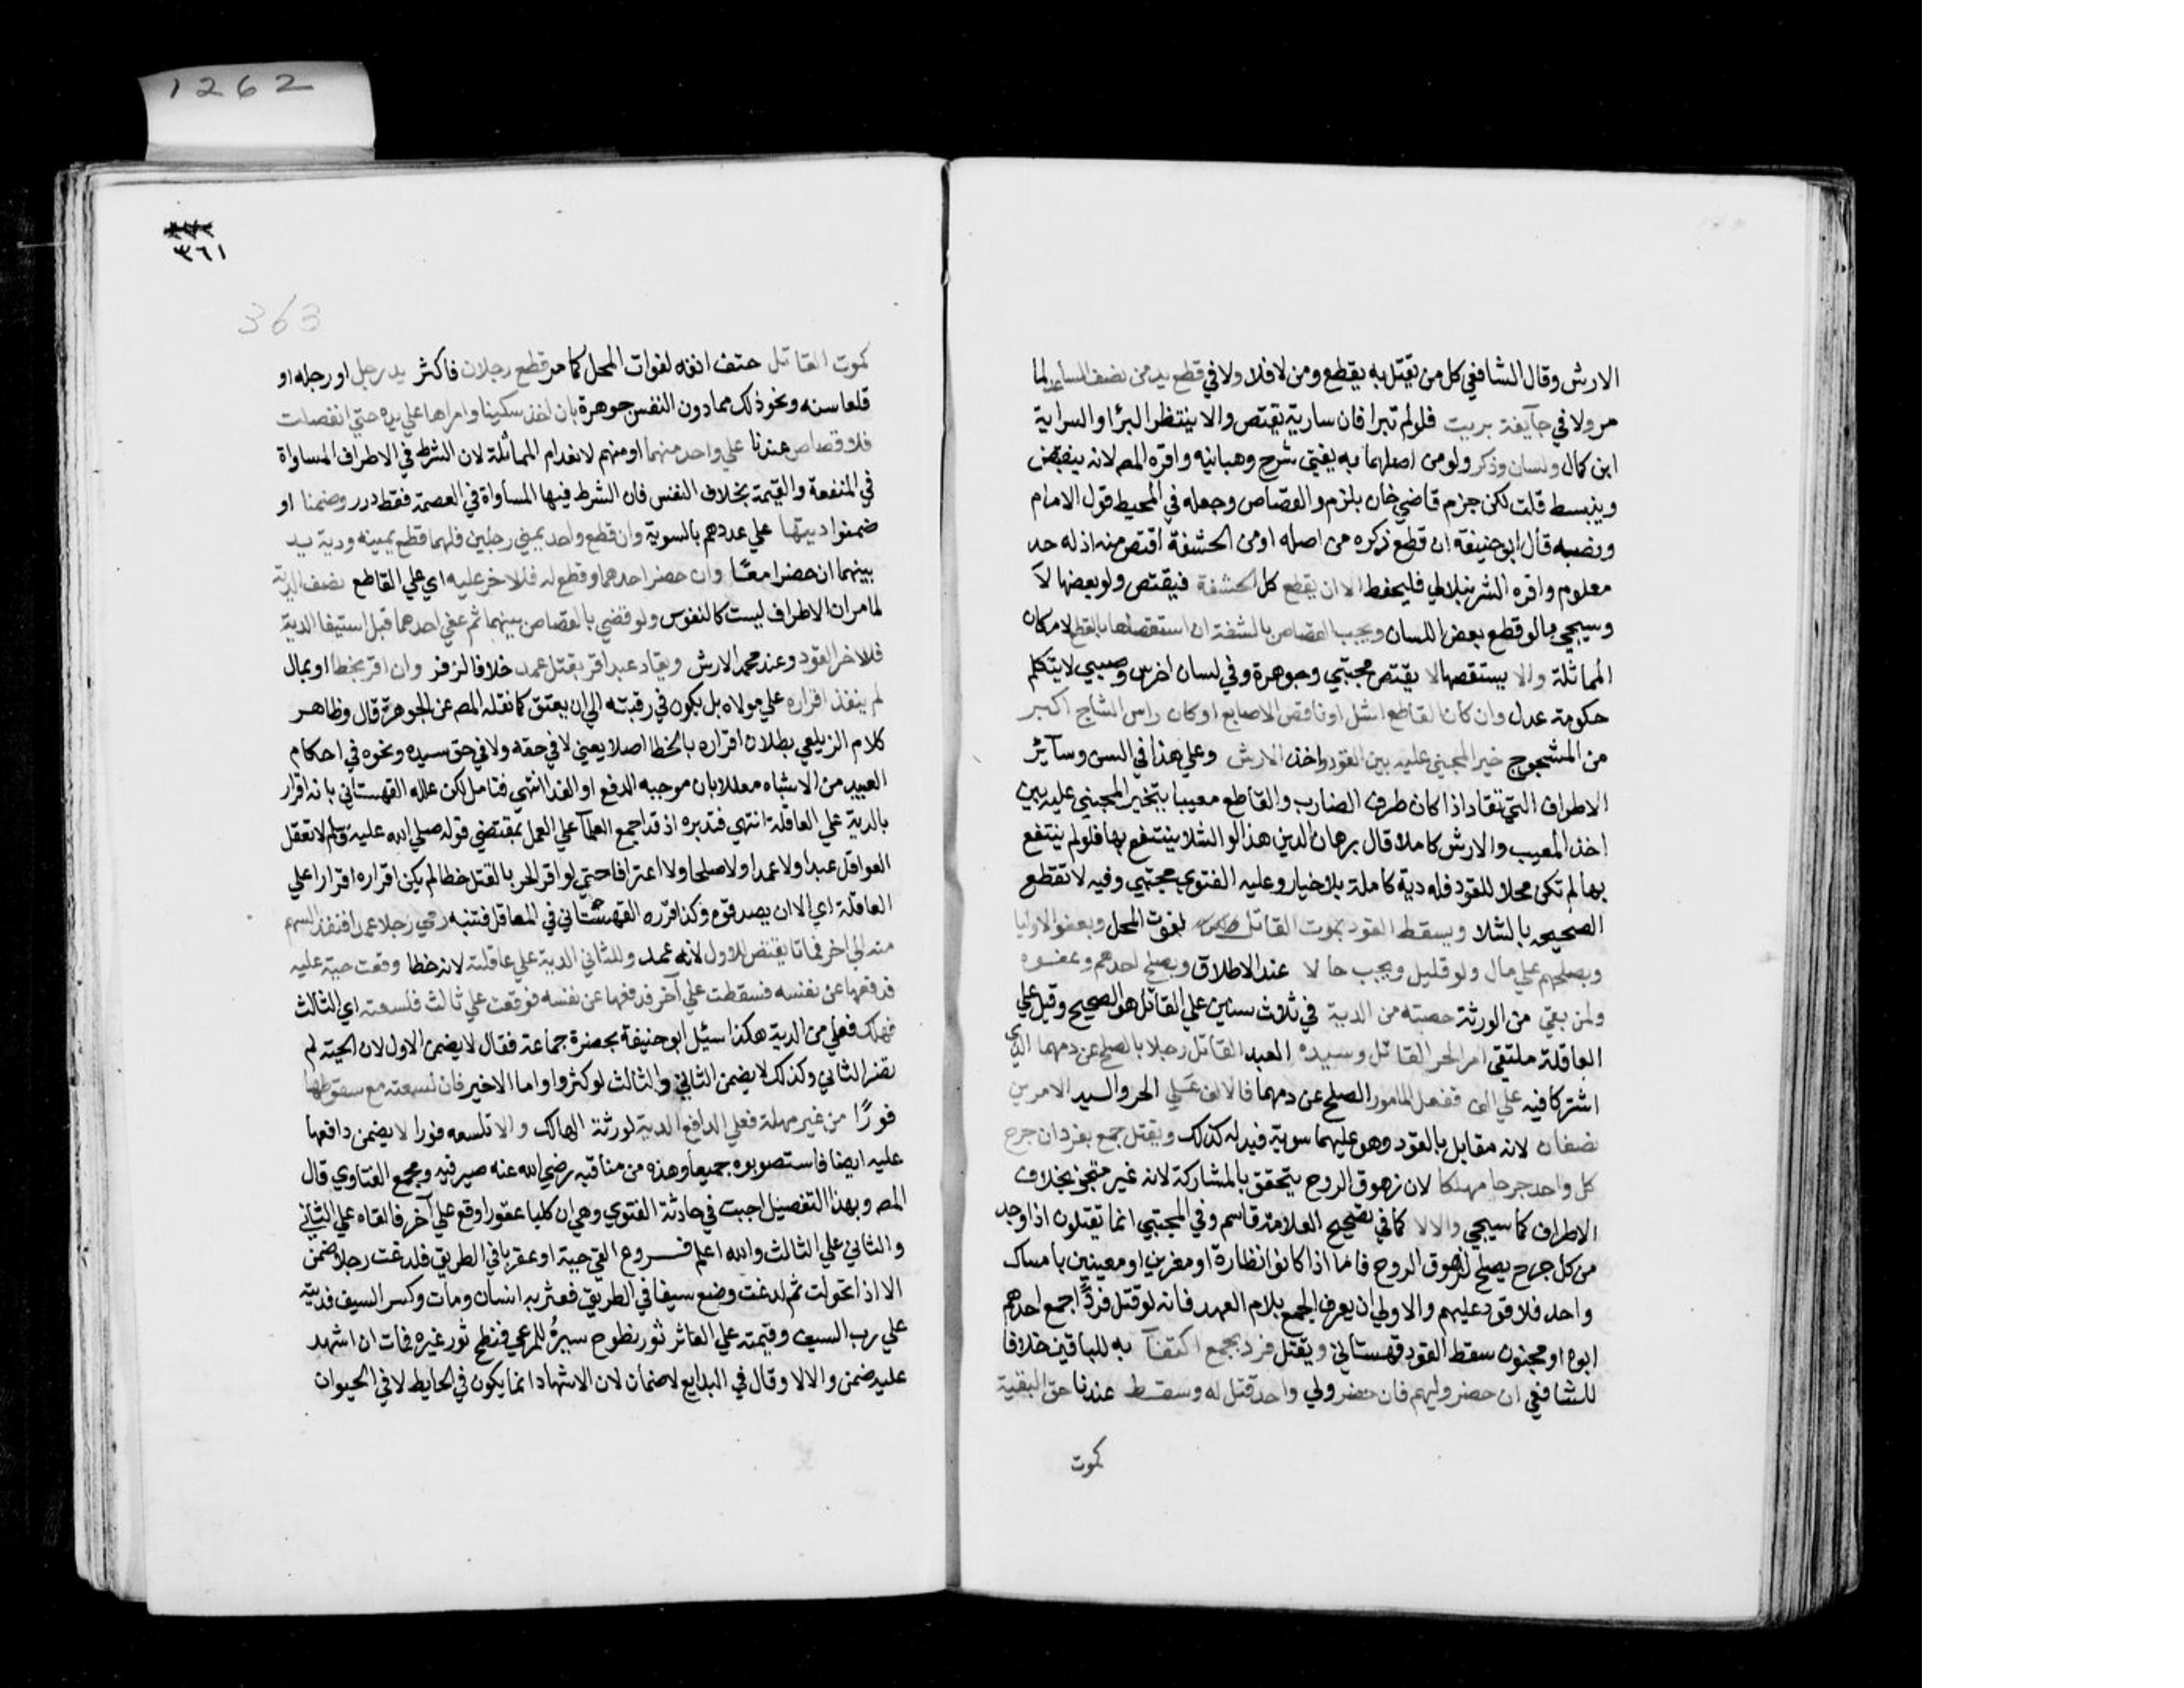 1262
الارش وقال الشافعي كل من يقتل به يقطع ومن لا فلا ولا في قطع يد من نصف الساعد لما
مر ولا في جآيفة بريت فلو لم تبرا فان سارية يقتص والا ينتظر البرا والسراية
ابن كمال ولسان وذكر ولو من اصلهما به يفتي شرح وهبانيه واقره المص لانه ينقبض
وينبسط قلت لكن جزم قاضي خان بلزوم القصاص وجعله في المحيط قول الامام
ونصه قال ابو حنيفة ان قطع ذكره من اصله او من الحشفة اقتص منه اذ له حد
معلوم واقره الشرنبلالي فليحفظ الا ان يقطع كل الحشفة فيقتص ولو بعضها لا
وسيجي ما لو قطع بعض اللسان ويجب القصاص بالشفة ان استقصاها بالقطع لامكان
المماثلة والا يستقصها لا يقتص مجتبي وجوهرة وفي لسان اخرس وصبي لا يتكلم
حكومة عدل وان كان القاطع اشل او ناقص الاصابع او كان راس الشاج اكبر
من المشجوج خير المجني عليه بين القود واخذ الارش وعلي هذا في السن وسآئر
الاطراف التي تقاد اذا كان طرف الضارب والقاطع معيبا يتخير المجني عليه بين
اخذ المعيب والارش كاملا قال برهان الدين هذا لو الشلا ينتفع بها فلو لم ينتفع
بها لم تكن محلا للقود فله دية كاملة بلا خيار وعليه الفتوي مجتبي وفيه لا تقطع
الصحيحه بالشلا ويسقط القود بموت القاتل لفوت المحل وبعفو الاوليا
وبصلحهم علي مال ولو قليل ويجب حالا عند الاطلاق وبصلح احدهم وعفوه
ولمن بقي من الورثة حصته من الدية في ثلاث سنين علي القاتل هو الصحيح وقيل علي
العاقلة ملتقي امر الحر القاتل وسيده العبد القاتل رجلا بالصلح عن دمهما الذي
اشتركا فيه علي الف ففعل المامور الصلح عن دمهما فالالف علي الحر والسيد الامرين
نصفان لانه مقابل بالقود وهو عليهما سوية فبدله كذلك ويقتل جمع بفرد ان جرح
كل واحد جرحا مهلكا لان زهوق الروح يتحقق بالمشاركة لانه غير متجز بخلاف
الاطراف كما سيجي والا لا كما في تصحيح العلامة قاسم وفي المجتبي انما تقتلون اذا وجد
من كل جرح يصلح لزهوق الروح فاما اذا كانوا نظارة او مغرين او معينين بامساك
واحد فلا قود عليهم والاولي ان يعرف الجمع بلام العهد فانه لو قتل فرد جمع احدهم
ابوه او مجنون سقط القود قهستاني ويقتل فرد بجمع اكتفآ به للباقين خلافا
للشافعي ان حضر وليهم فان حضر ولي واحد قتل له وسقط عندنا حق البقية
كموت
٣٦١
363
كموت القاتل حتف انفه لفوات المحل كما مر قطع رجلان فاكثر يد رجل او رجله او
قلعا سنه ونحو ذلك مما دون النفس جوهرة بان اخذ سكينا وامراها علي يده حتي انفصلت
فلا قصاص عندنا علي واحد منهما او منهم لانعدام المماثلة لان الشرط في الاطراف المساواة
في المنفعة والقيمة بخلاف النفس فان الشرط فيها المساواة في العصمة فقط درر وضمنا او
ضمنوا ديتها علي عددهم بالسوية وان قطع واحد يميني رجلين فلهما قطع يمينه ودية يد
بينهما ان حضرا معًا وان حضر احدهما وقطع له فللاخر عليه اي علي القاطع نصف الدية
لما مر ان الاطراف ليست كالنفوس ولو قضي بالقصاص بينهما ثم عفي احدهما قبل استيفا الدية
فللاخر القود وعند محمد الارش ويقاد عبد اقر بقتل عمد خلافا لزفر وان اقر بخطا او بمال
لم ينفذ اقراره علي مولاه بل يكون في رقبته الي ان يعتق كما نقله المص عن الجوهرة قال وظاهر
كلام الزيلعي بطلان اقراره بالخطا اصلا يعني لا في حقه ولا في حق سيده ونحوه في احكام
العبيد من الاشباه معللا بان موجبه الدفع او الفدا انتهي فتامل لكن علله القهستاني بانه اقرار
بالدية علي العاقلة انتهي فتدبره اذ قد اجمع العلمآ علي العمل بمقتضي قوله صلي الله عليه وسلم لا تعقل
العواقل عبدا ولا عمدا ولا صلحا ولا اعترافا حتي لو اقر الحر بالقتل خطا لم يكن اقراره اقرارا علي
العاقلة اي الا ان يصدقوه وكذا قرره القهستاني في المعاقل فتنبه رمي رجلا عمدا فنفذ السهم
منه الي اخر فماتا يقتص للاول لانه عمد وللثاني الدية علي عاقلته لانه خطا وقعت حية عليه
فدفعها عن نفسه فسقطت علي آخر فدفعها عن نفسه فوقعت علي ثالث فلسعته اي الثالث
فهلك فعلي من الدية هكذا سئل ابو حنيفة بحضرة جماعة فقال لا يضمن الاول لان الحية لم
تضر الثاني وكذلك لا يضمن الثاني والثالث لو كثروا واما الاخير فان لسعته مع سقوطها
فورًا من غير مهلة فعلي الدافع الدية لورثة الهالك والا تلسعه فورا لا يضمن دافعها
عليه ايضا فاستصوبوه جميعا وهذه من مناقبه رضي الله عنه صيرفيه ومجمع الفتاوي قال
المص وبهذا التفصيل اجبت في حادثة الفتوي وهي ان كلبا عقورا وقع علي آخر فالقاه علي الثاني
والثاني علي الثالث والله اعلم فــروع القي حية او عقربا في الطريق فلدغت رجلا ضمن
الا اذا تحولت ثم لدغت وضع سيفا في الطريق فعثر به انسان ومات وكسر السيف فديته
علي رب السيف وقيمته علي العاثر ثور نطوح سيرُ للمرعي فنطح ثور غيره فمات ان اشهد
عليه ضمن والا لا وقال في البدايع لا ضمان لان الاشهاد انما يكون في الحايط لا في الحيوان